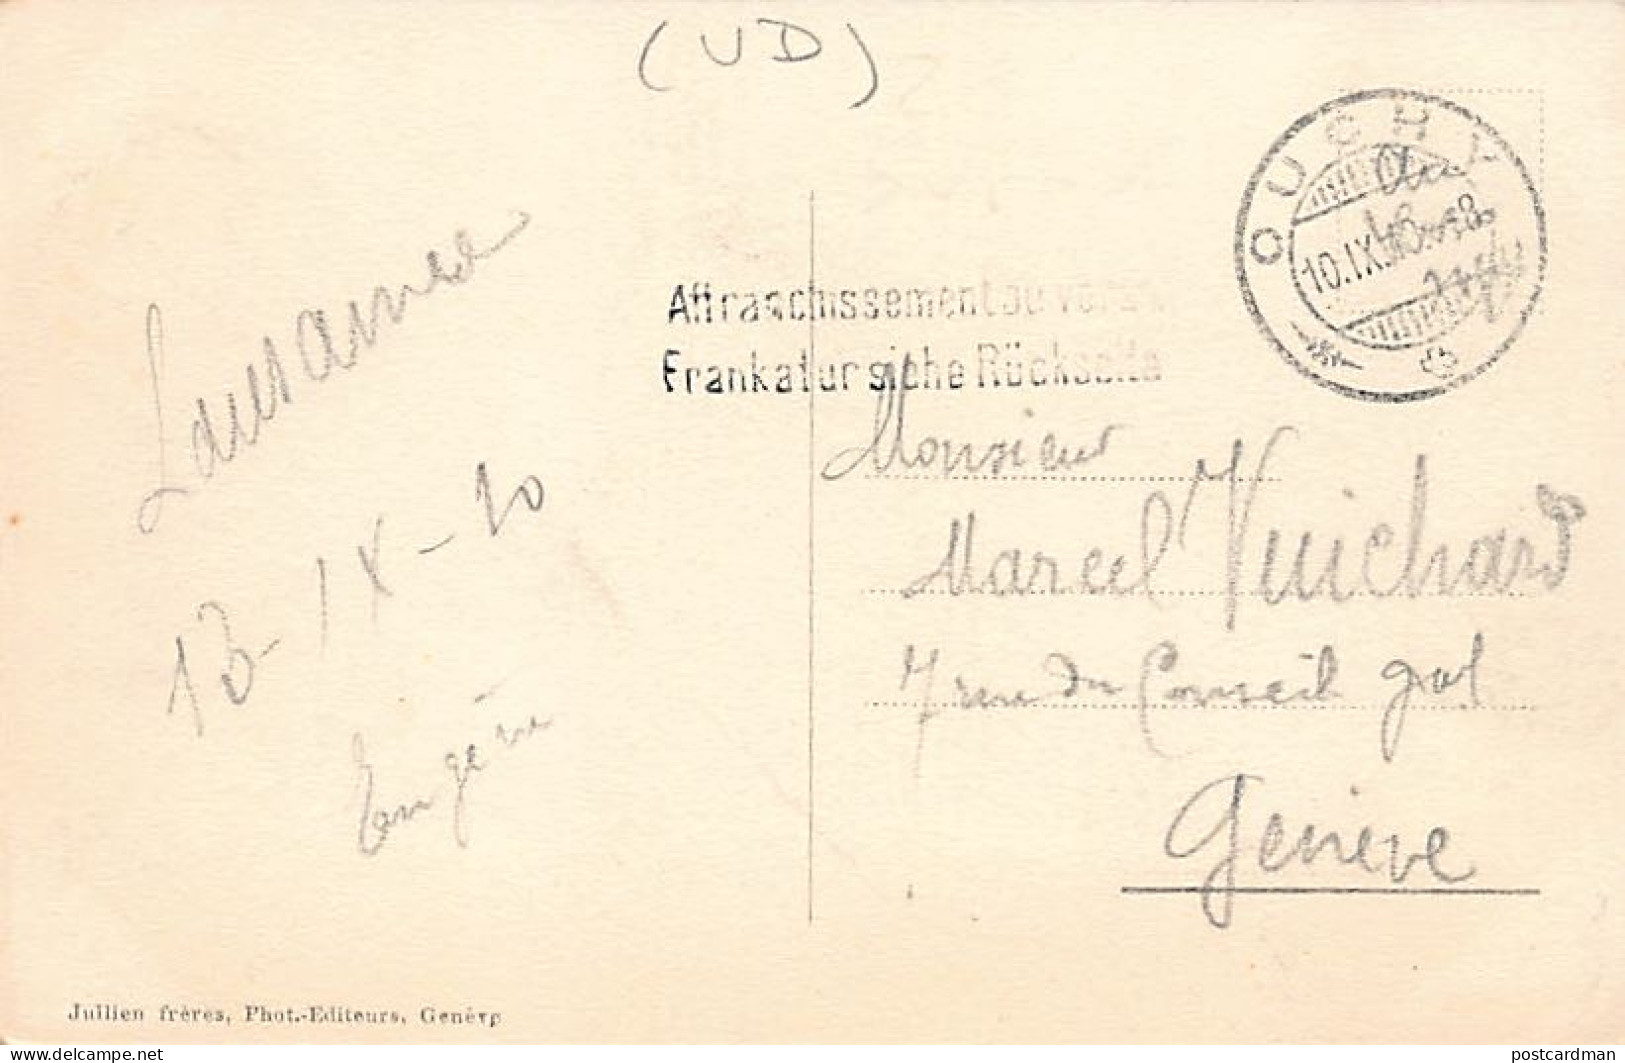 (VD)
OUCHY
10.IX.
Affranchissement au verso
Frankatur siehe Rückseite
Lausanne
13-IX-10
Eugène
Monsieur
Marcel Vuichard
7 rue du Conseil gal
Genève
Jullien frères, Phot.-Editeurs, Genève
www.delcampe.net
postcardman